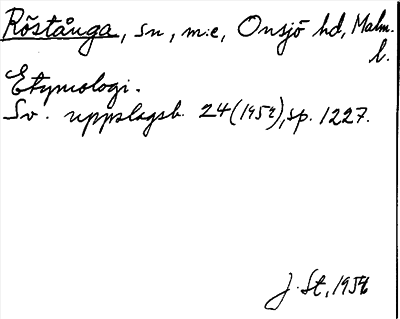 Röstånga, sn, m:e, Onsjö hd, Malm.
l.
Etymologi.
Sv. uppslagsb. 24 (1952), sp. 1227.
J. St, 1954